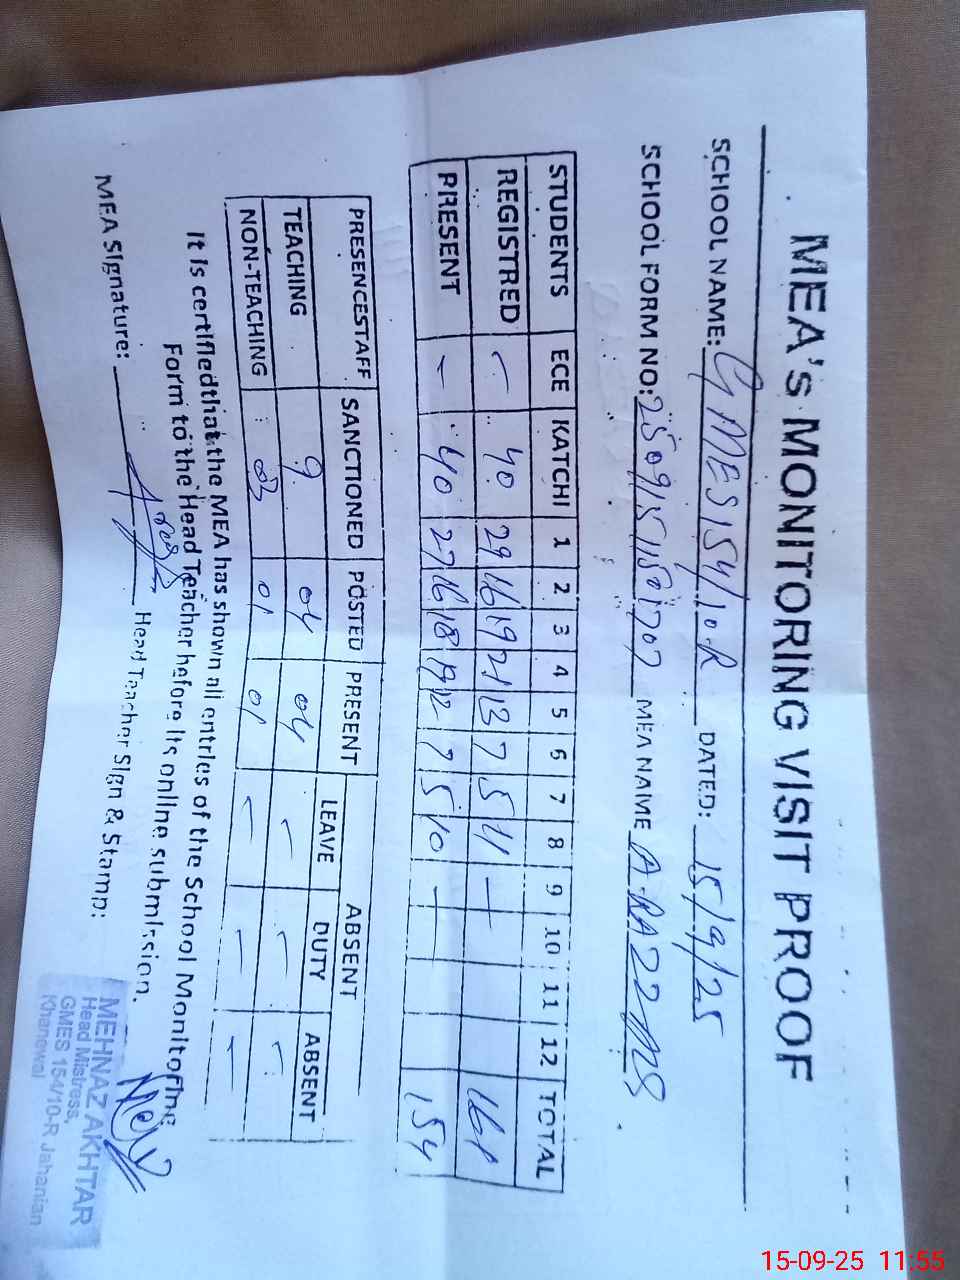 MEA's MONITORING VISIT PROOF
SCHOOL NAME: GMES 154/10-R DATED: 15/9/25
SCHOOL FORM NO: MEA NAME A.RAZZAQ
STUDENTS ECE KATCHI 1 2 3 4 5 6 7 8 9 10 11 12 TOTAL
REGISTRED – 40 29 16 19 21 13 7 5 11 – 161
PRESENT – 40 27 16 18 19 12 7 5 10 – 154
PRESENCESTAFF SANCTIONED POSTED PRESENT ABSENT
LEAVE DUTY ABSENT
TEACHING 9 04 04 – – –
NON-TEACHING 03 01 01 – – –
It is certifiedthat the MEA has shown all entries of the School Monitoring
Form to the Head Teacher before its online submission.
MEA Signature: Head Teacher Sign & Stamp:
MEHNAZ AKHTAR
Head Mistress,
GMES 154/10-R Jahanian
Khanewal
15-09-25 11:55